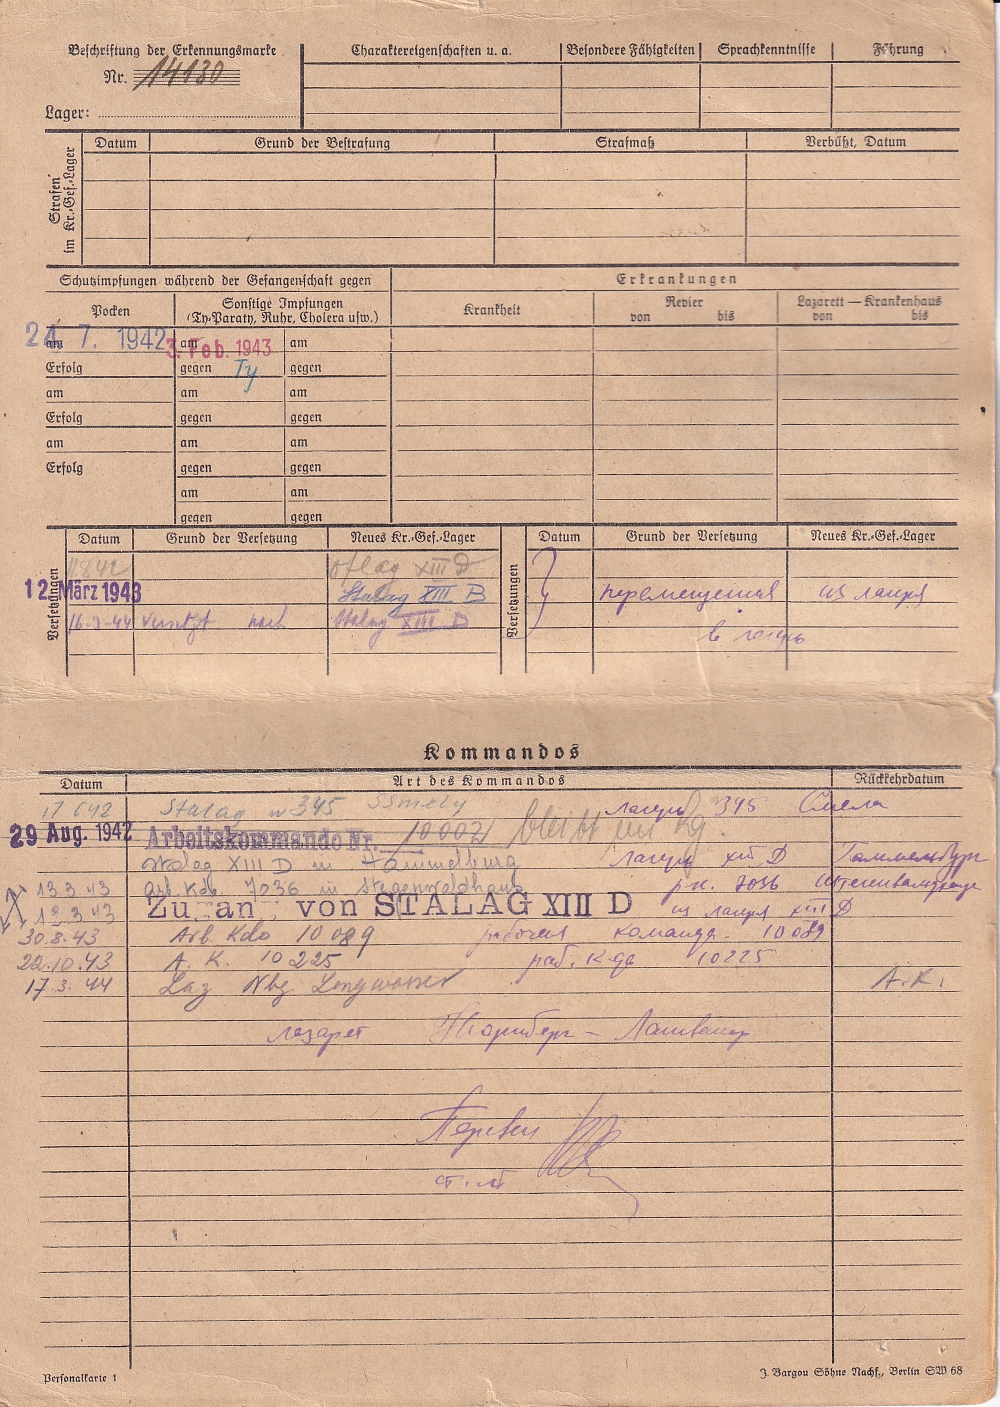 Beschriftung der Erkennungsmarke
Nr. 14130
Lager:
Charaktereigenschaften u. a.
Besondere Fähigkeiten
Sprachkenntnisse
Führung
Strafen im Kr.-Gef.-Lager
Datum
Grund der Bestrafung
Strafmaß
Verbüßt, Datum
Schutzimpfungen während der Gefangenschaft gegen
Erkrankungen
Pocken
Sonstige Impfungen
(Ty-Paraty, Ruhr, Cholera usw.)
Krankheit
Revier
von bis
Lazarett — Krankenhaus
von bis
am 24. 7. 1942 am 3. Feb. 1943 am
Erfolg gegen Ty gegen
am am am
Erfolg gegen gegen
am am am
Erfolg gegen gegen
am am
gegen gegen
Versetzungen
Datum Grund der Versetzung Neues Kr.-Gef.-Lager
Oflag XIII D
12. März 1943 Stalag XIII B
versetzt nach Stalag XIII D
Versetzungen
Datum Grund der Versetzung Neues Kr.-Gef.-Lager
перемещения из лагеря
в лагерь
Kommandos
Datum Art des Kommandos Rückkehrdatum
17 6 42 Stalag 345 Ssmely лагерь 345 Смела
29 Aug. 1942 Arbeitskommando Nr. 10002 bleibt
Stalag XIII D in Hammelburg лагерь XIII D Гаммельбург
13.3.43 Arb. Kdo. 7036 in р.к. 7036
12.3.43 Zugang von STALAG XIII D из лагеря XIII D
30.8.43 Arb. Kdo 10089 рабочая команда 10089
22.10.43 A. K. 10225 раб. к-да 10225
17.3.44 Laz Nbg. Langwasser A.K.
лазарет Нюрнберг – Лангвассер
Перевел
ст. лт
Personalkarte 1
J. Bargou Söhne Nachf., Berlin SW 68